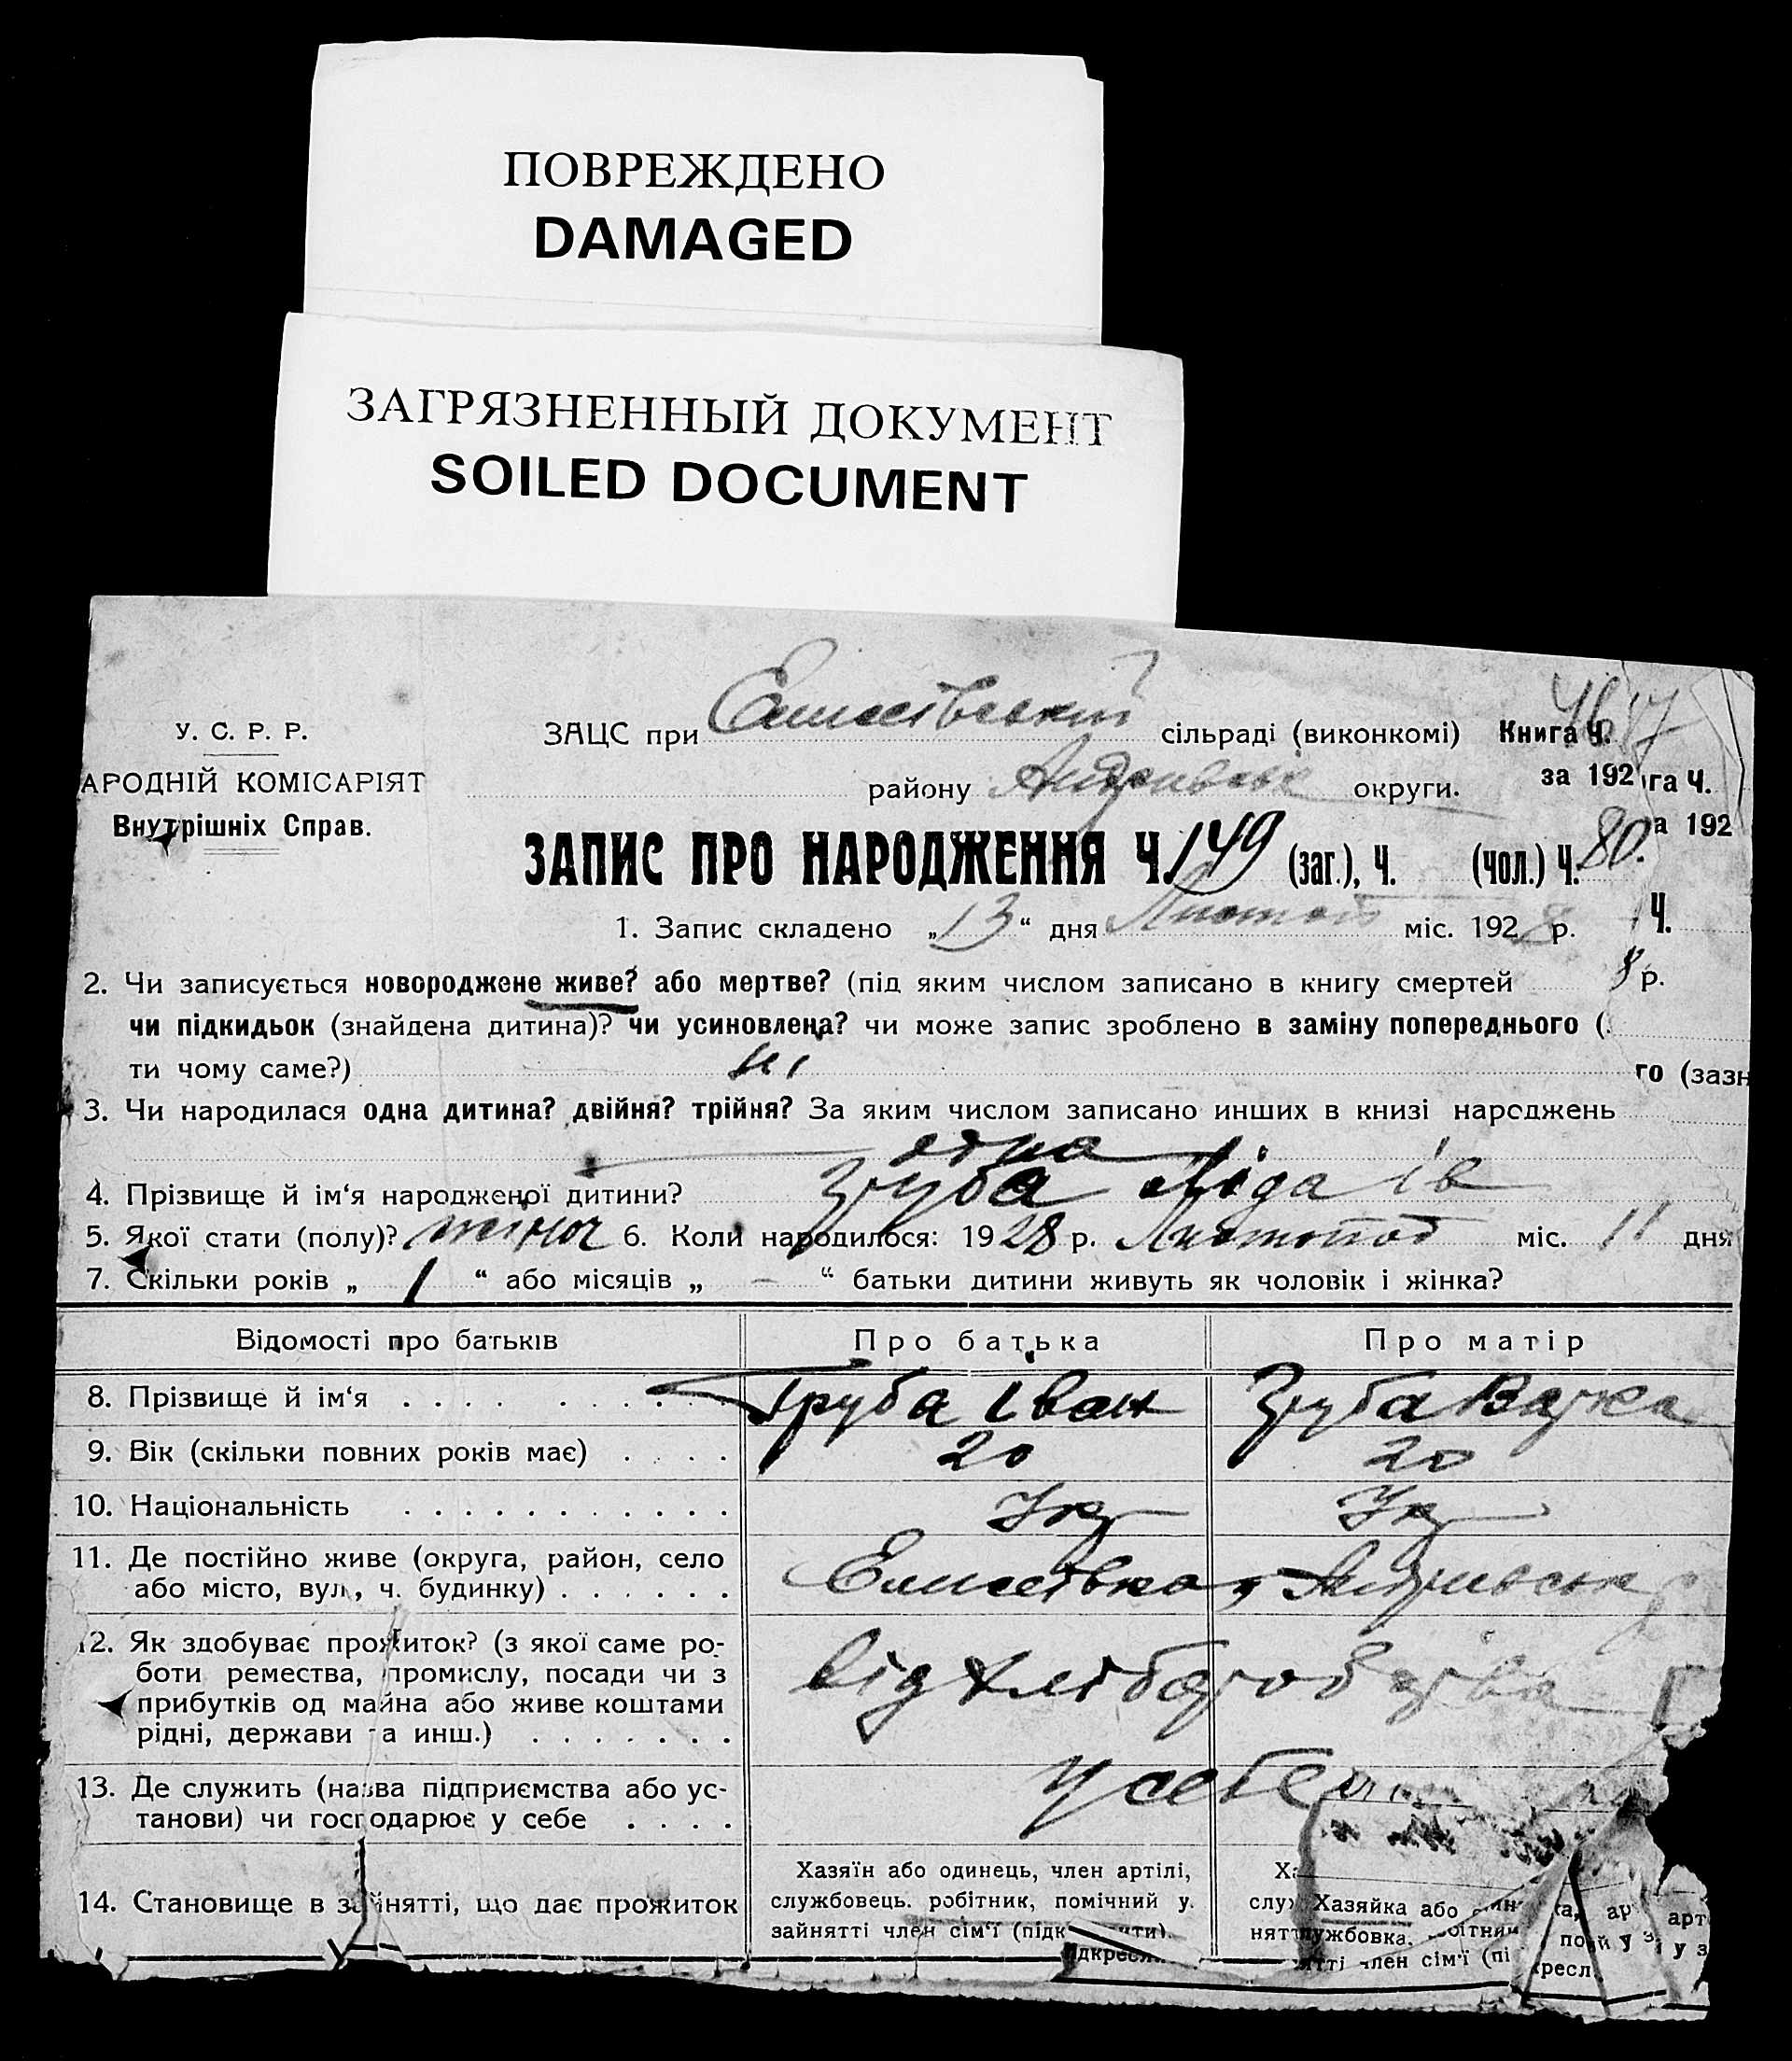 ПОВРЕЖДЕНО
DAMAGED
ЗАГРЯЗНЕННЫЙ ДОКУМЕНТ
SOILED DOCUMENT
У. С. Р. Р.
АРОДНІЙ КОМІСАРІЯТ
Внутрішніх Справ.
ЗАЦС при Єлисеївський сільраді (виконкомі) Книга Ч.
району Андриївськ округи. за 192
га Ч.
а 192
ЗАПИС ПРО НАРОДЖЕННЯ Ч. 149 (заг.), Ч. (чол.) Ч. 80.
Ч.
1. Запис складено „13“ дня Листоп міс. 1928 р.
8 р.
2. Чи записується новороджене живе? або мертве? (під яким числом записано в книгу смертей
чи підкидьок (знайдена дитина)? чи усиновлена? чи може запис зроблено в заміну попереднього (
ти чому саме?) ні го (зазн
3. Чи народилася одна дитина? двійня? трійня? За яким числом записано инших в книзі народжень
одна
4. Прізвище й ім‘я народженої дитини? Груба Ліда Ів
5. Якої стати (полу)? жіноч 6. Коли народилося: 1928 р. Листопад міс. 11 дня
7. Скільки років „ 1 “ або місяців „ – “ батьки дитини живуть як чоловік і жінка?
Відомості про батьків Про батька Про матір
8. Прізвище й ім‘я . . . . . . . . . . Груба Іван Груба
9. Вік (скільки повних років має) . . . . 20 20
10. Національність . . . . . . . . . . . . Укр Укр
11. Де постійно живе (округа, район, село
або місто, вул., ч. будинку) . . . . . . Єлисеївка, Андриївськ
12. Як здобуває прожиток? (з якої саме ро-
боти ремества, промислу, посади чи з
прибутків од майна або живе коштами
рідні, держави та инш.) . . . . . . .
від хліборобства
13. Де служить (назва підприємства або ус-
танови) чи господарює у себе . . . .
у себе
14. Становище в зайнятті, що дає прожиток
Хазяїн або одинець, член артілі,
службовець. робітник, помічний у.
зайнятті член сім‘ї (підк ти).
дкресл
Ха
служ Хазяйка або
нятт службовка.
ятті член сім‘ї (пі кресл